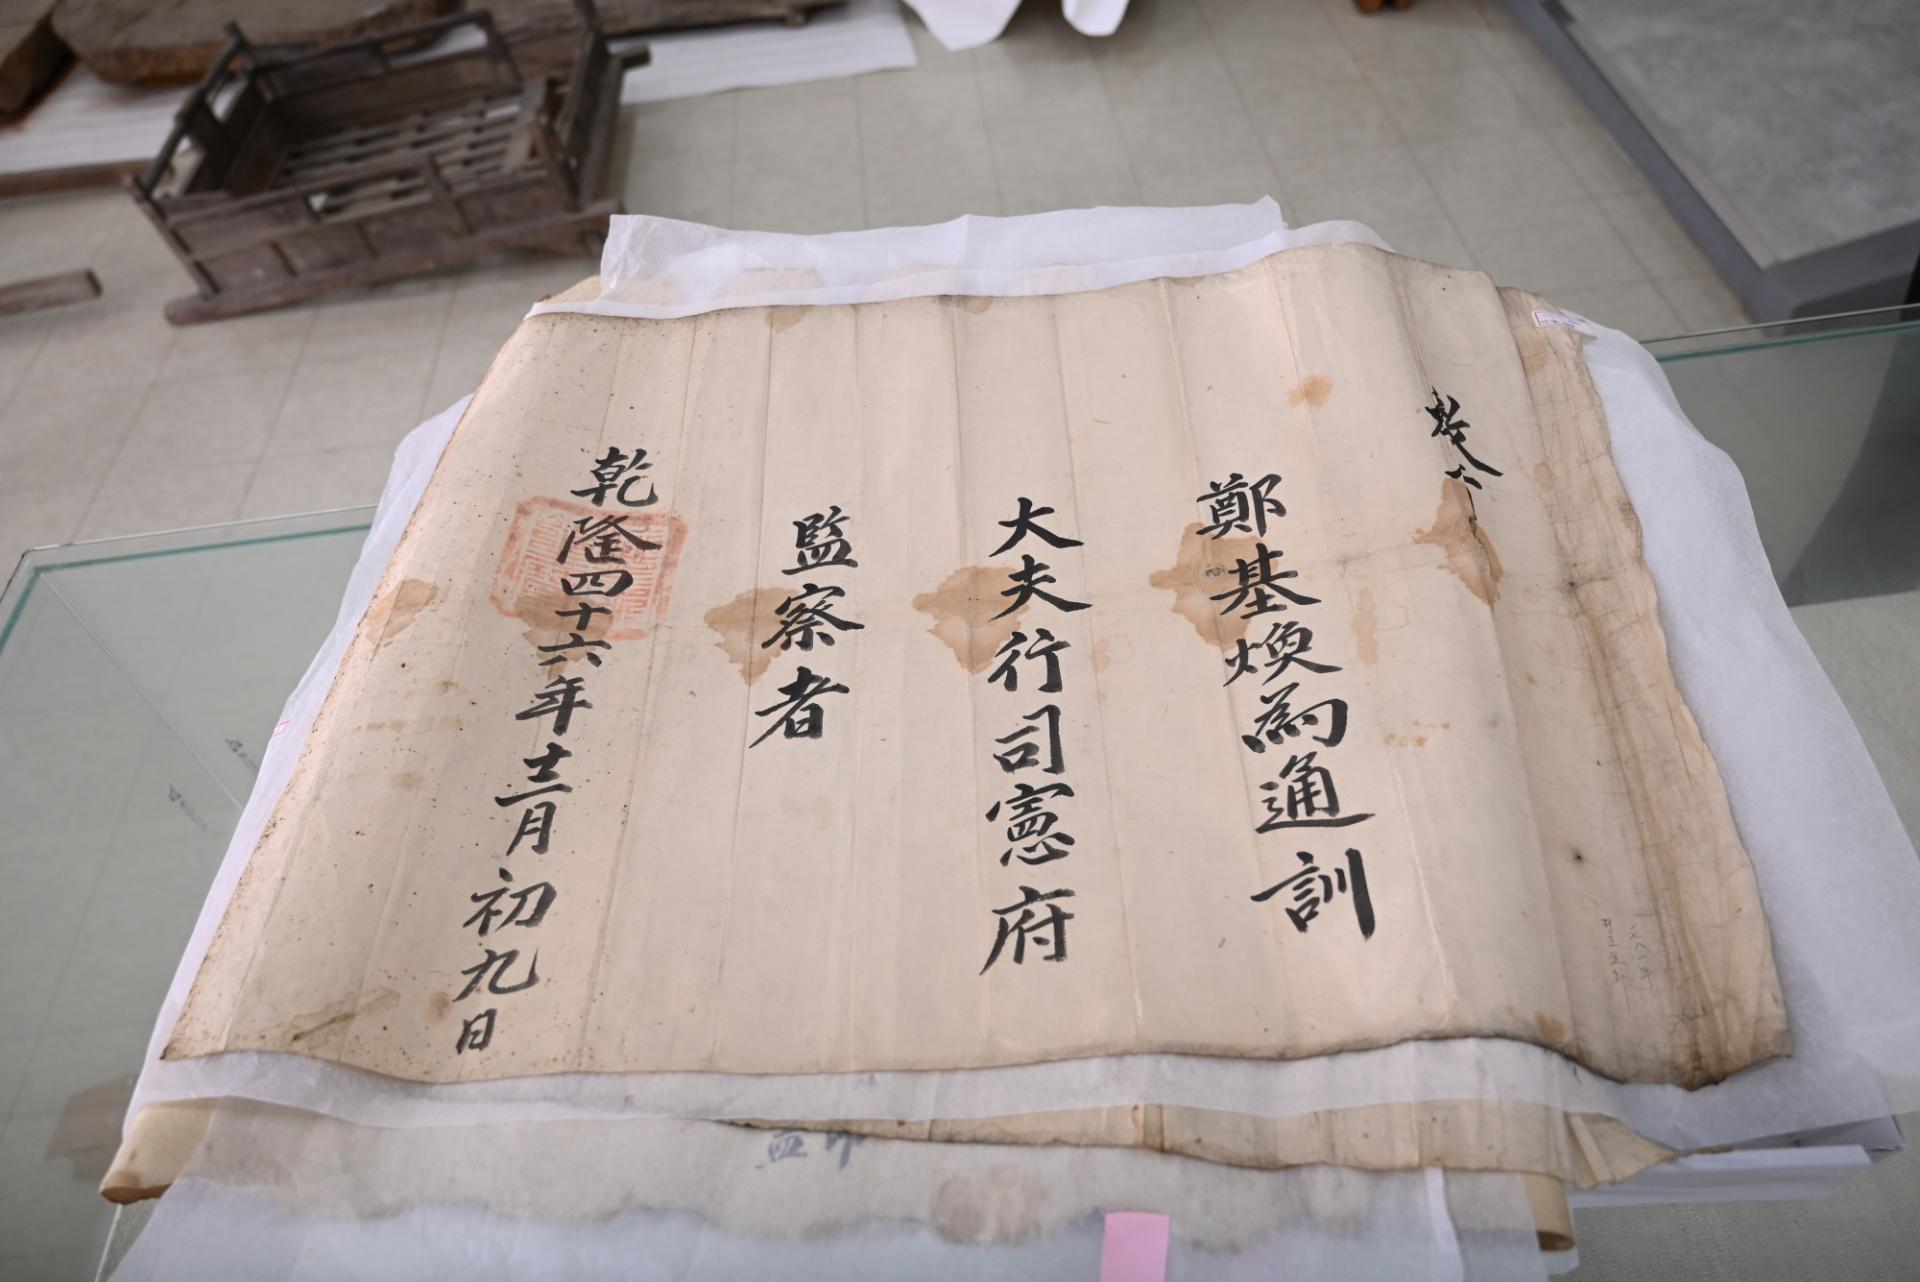 鄭基煥為通訓
大夫行司憲府
監察者
乾隆四十六年十二月初九日